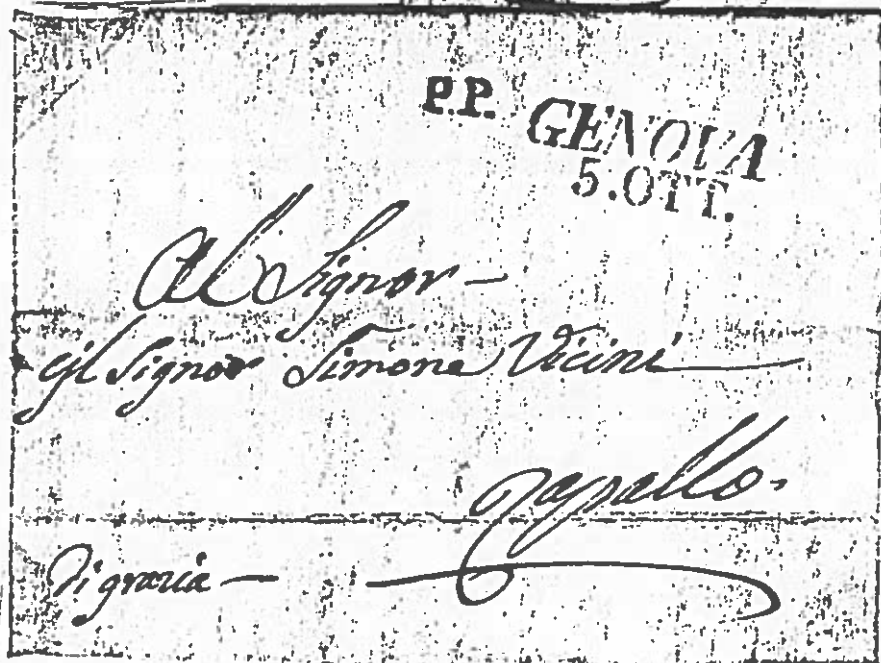 P.P. GENOVA
5.OTT.
Al Signor -
il Signor Simone Vicini
Rapallo.
Di grazia -